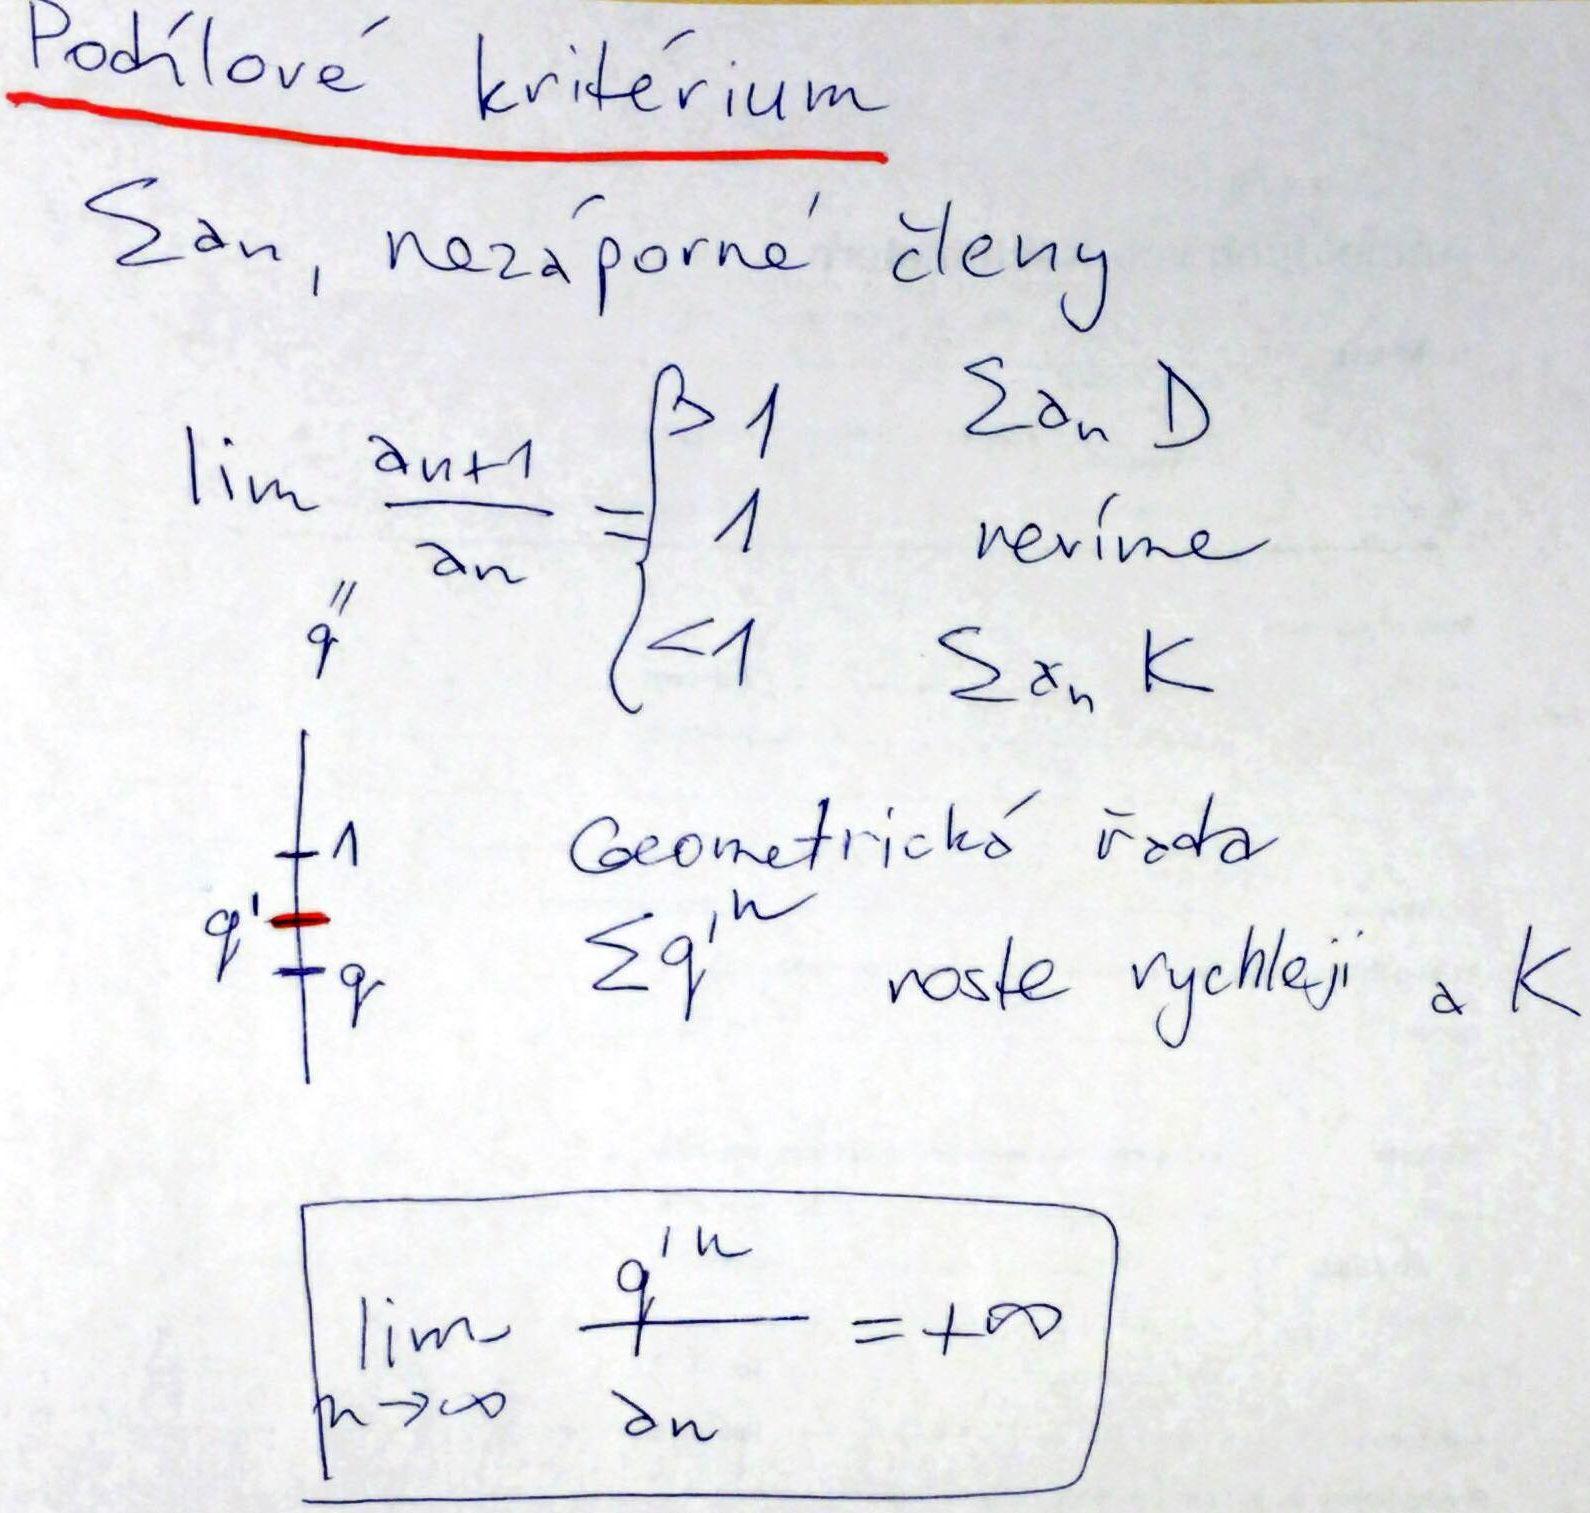 Podílové kritérium
Σan, nezáporné členy
lim an+1/an = { > 1 Σan D
1 nevíme
< 1 Σan K
"
q
1
q'
q
Geometrická řada
Σq'^n roste rychleji a K
lim n→∞ q'^n/an = +∞